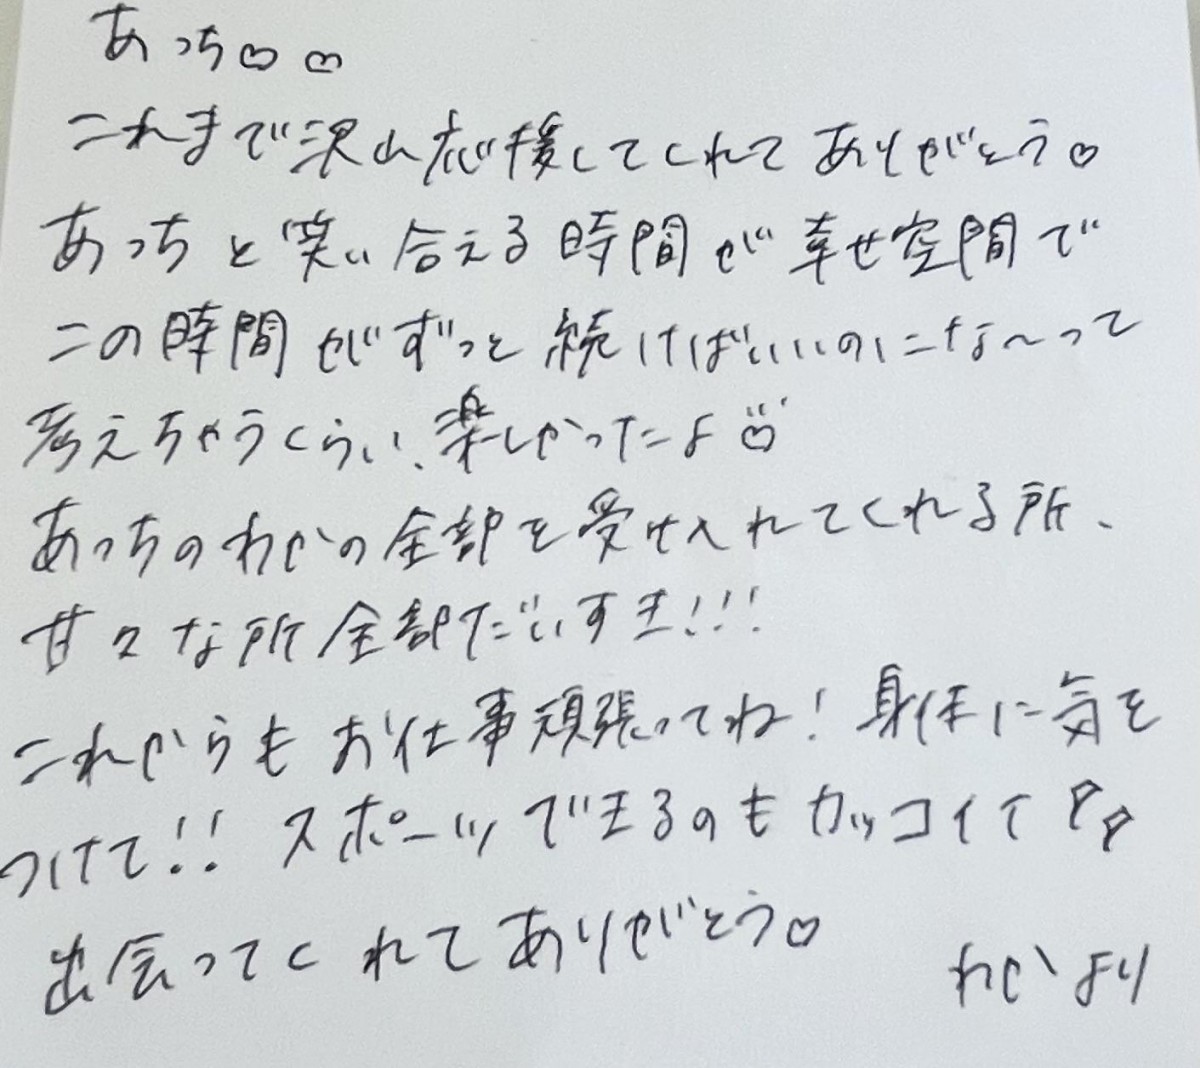 あっち♡♡
これまで沢山応援してくれてありがとう♡
あっちと笑い合える時間が幸せ空間で
この時間がずっと続けばいいのにな〜って
考えちゃうくらい、楽しかったよ
あっちのわかの全部を受け入れてくれる所、
甘々な所全部だいすき!!!
これからもお仕事頑張ってね!身体に気を
つけて!!スポーツできるのもカッコイイ
出会ってくれてありがとう♡
わかより